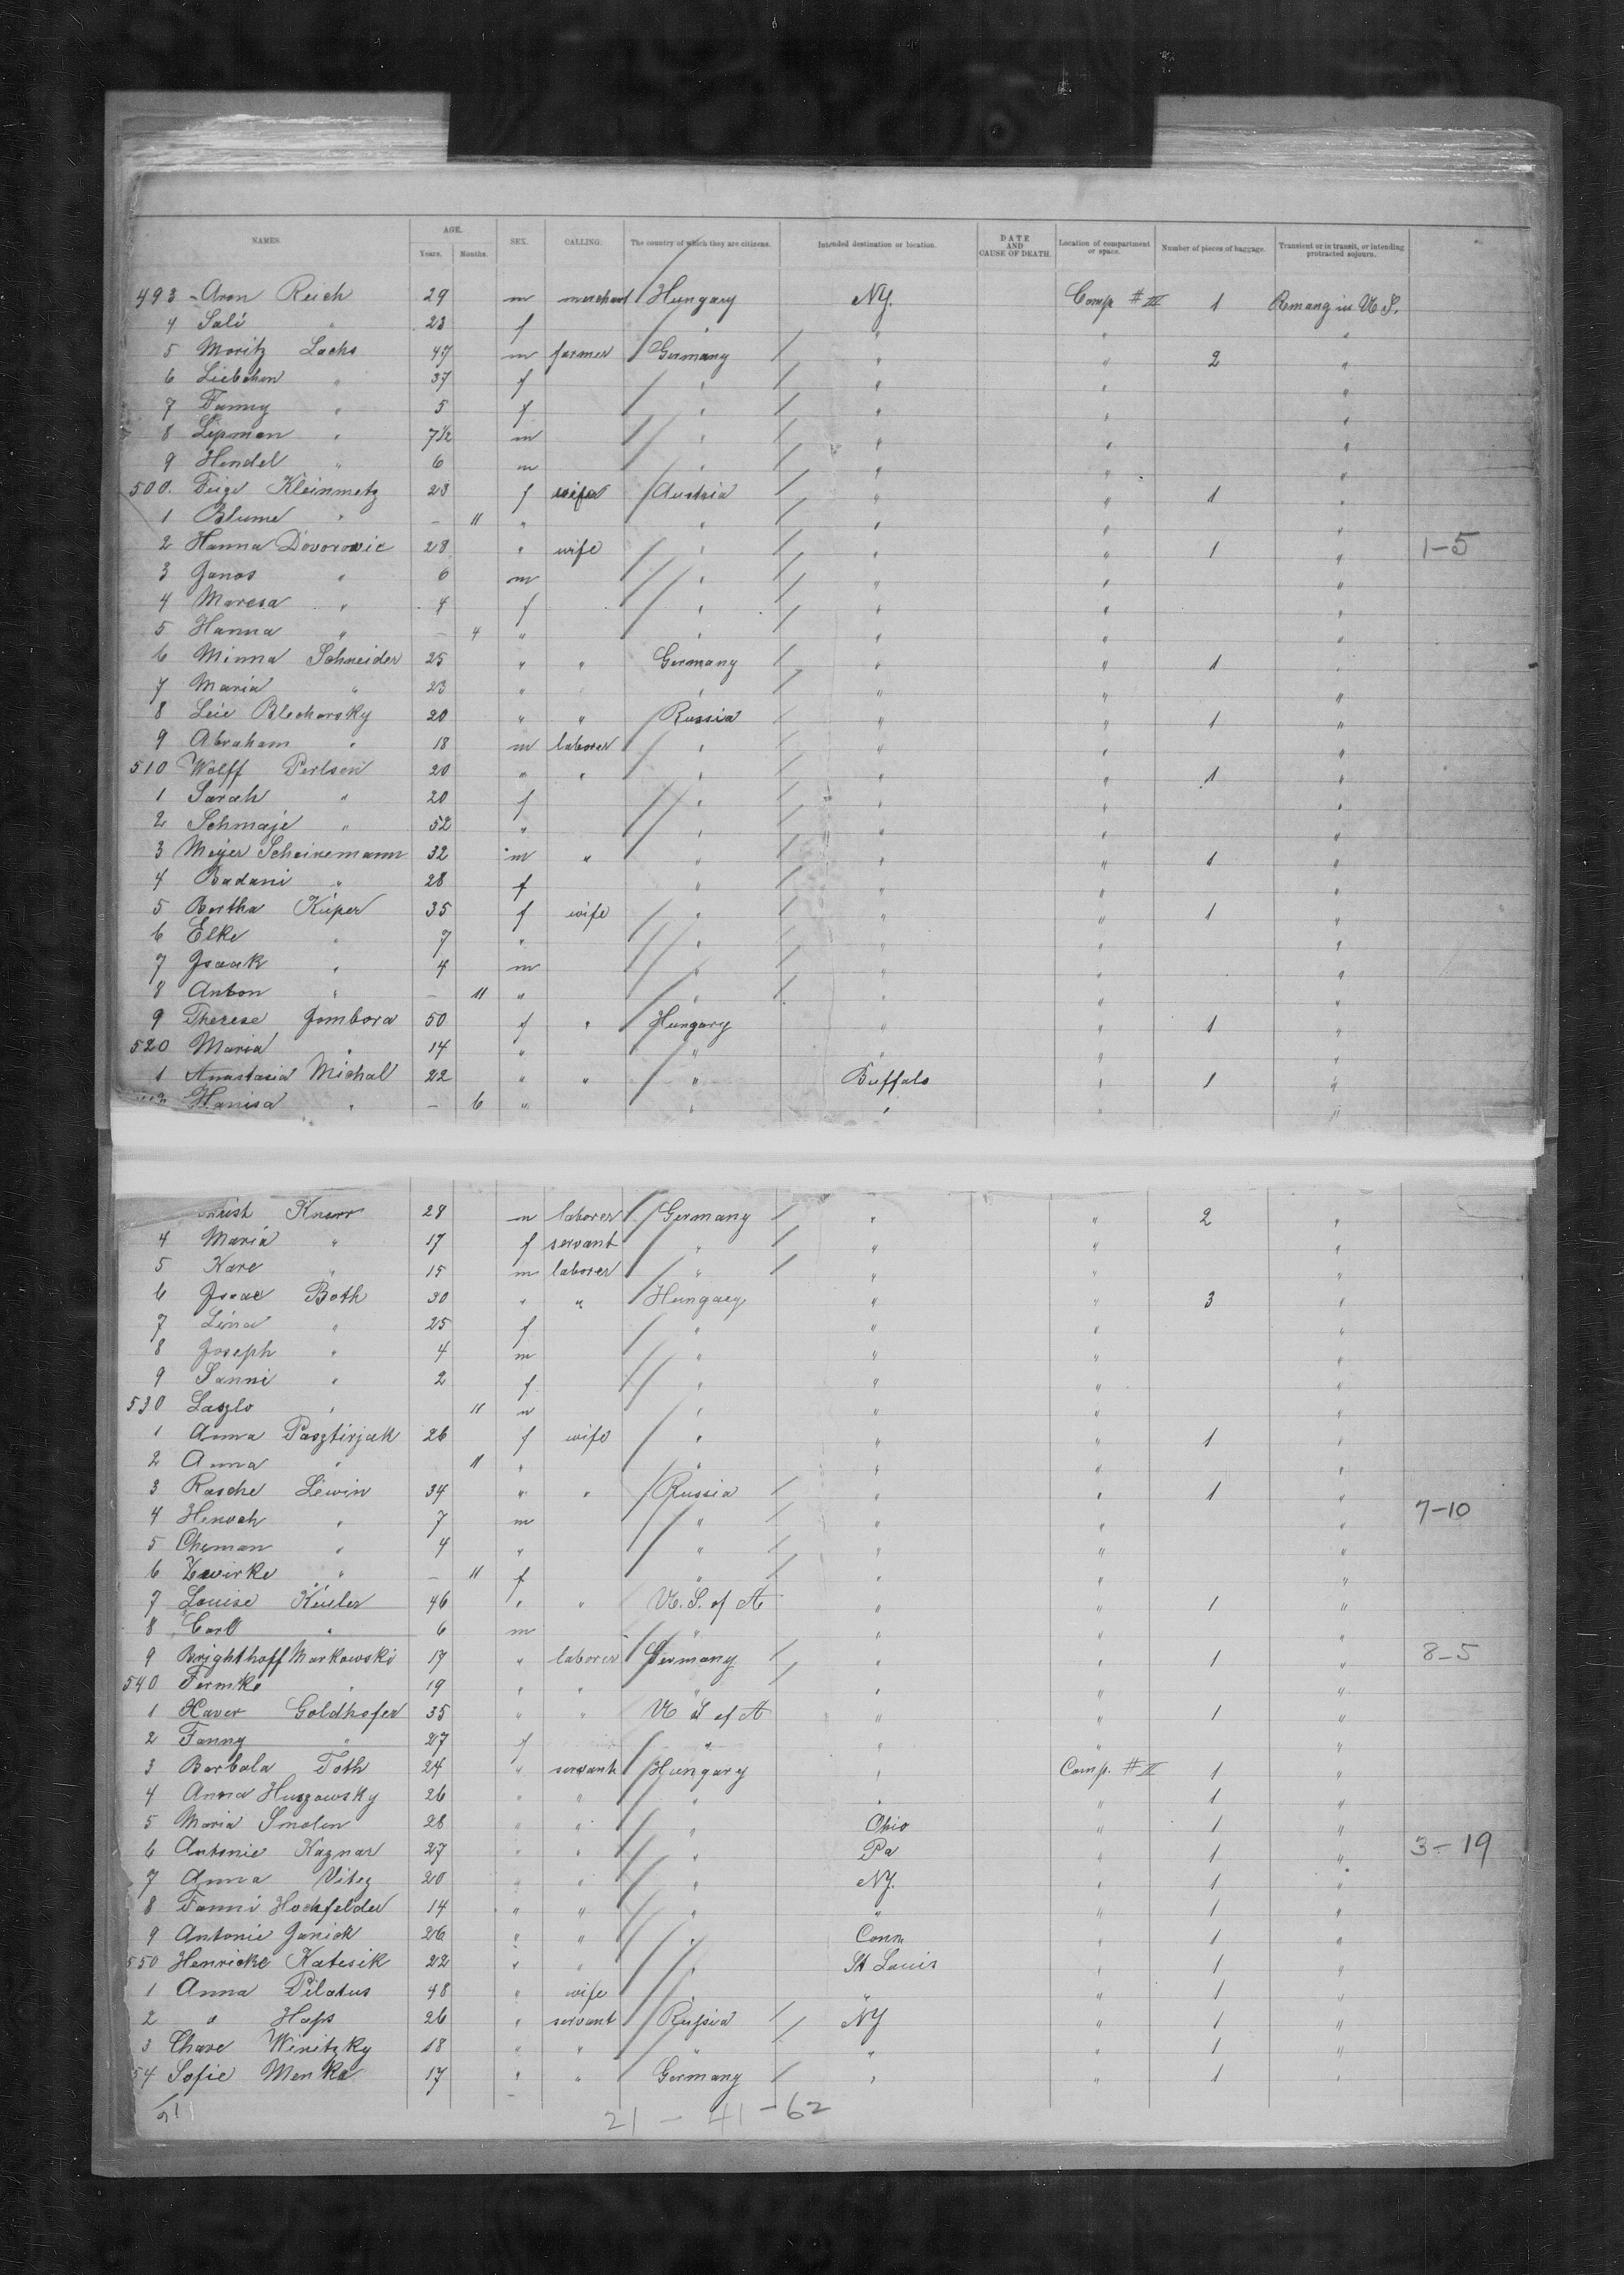 NAMES. AGE. Years. Months. SEX. CALLING. The country of which they are citizens. Intended destination or location. DATE AND CAUSE OF DEATH. Location of compartment or space. Number of pieces of baggage. Transient or in transit, or intending protracted sojourn.
493 - Aron Reich 29 m merchant Hungary NY. Comp # III 1 Remang in U. S.
4 Sali " 23 f " " " "
5 Moritz Lachs 47 m farmer Germany " " 2 "
6 Liebchen " 37 f " " " "
7 Fanny " 5 f " " " "
8 Lipman " 7½ m " " " "
9 Hendel " 6 m " " " "
500. Feige Kleinmetz 23 f wife Austria " " 1 "
1 Blume " - 11 " " " " "
2 Hanna Dovorovic 28 " wife " " " 1 " 1-5
3 Janos " 6 m " " " "
4 Maresa " 4 f " " " "
5 Hanna " - 4 " " " " "
6 Minna Schneider 25 " " Germany " " 1 "
7 Maria " 23 " " " " "
8 Leie Blecharsky 20 " " Russia " " 1 "
9 Abraham " 18 m laborer " " " "
510 Wolff Perlson 20 " " " " " 1 "
1 Sarah " 20 f " " " "
2 Schmaje " 52 " " " " "
3 Meyer Scheinemann 32 m " " " " 1 "
4 Badani " 28 f " " " "
5 Bertha Kuper 35 f wife " " " 1 "
6 Elke " 7 " " " " "
7 Isaak " 4 m " " " "
8 Anton " - 11 " " " " "
9 Therese Gombora 50 f " Hungary " " 1 "
520 Maria " 14 " " " " "
1 Anastasia Michal 22 " " " Buffalo " 1 "
Hanisa " - 6 " " " " "
Knorr 28 m laborer Germany " " 2 "
4 Maria " 17 f servant " " " "
5 Kare " 15 m laborer " " " "
6 Isaac Both 30 " " Hungary " " 3 "
7 Lina " 25 f " " " "
8 Joseph " 4 m " " " "
9 Sanni " 2 f " " " "
530 Laszlo " 11 m " " " "
1 Anna Pasztirjak 26 f wife " " " 1 "
2 Anna " 11 " " " " "
3 Rasche Lewin 34 " " Russia " " 1 "
4 Henoch " 7 m " " " " 7-10
5 Cheman " 4 " " " " "
6 Zwirke " - 11 f " " " "
7 Louise Keuler 46 " " U. S. of A " " 1 "
8 Carl " 6 m " " " "
9 Brighthoff Markowski 17 " laborer Germany " " 1 " 8-5
540 Fermke " 19 " " " " " "
1 Xaver Goldhofer 35 " " U S of A " " 1 "
2 Fanny " 27 f " " " "
3 Barbala Toth 24 " servant Hungary " Comp. # II 1 "
4 Anna Huszowsky 26 " " " " " 1 "
5 Maria Smolen 28 " " " Ohio " 1 "
6 Antonie Kaznar 27 " " " Pa " 1 " 3-19
7 Anna Vitez 20 " " " NY. " 1 "
8 Fanni Hochfelder 14 " " " " " 1 "
9 Antonie Janick 26 " " " Conn " 1 "
550 Henricke Katisik 22 " " " St Louis " 1 "
1 Anna Pilatus 48 " wife " " " 1 "
2 " Haps 26 " servant Russia NY " 1 "
3 Chave Winitzky 18 " " " " " 1 "
54 Sofie Menka 17 " " Germany " " 1 "
21 - 41 - 62